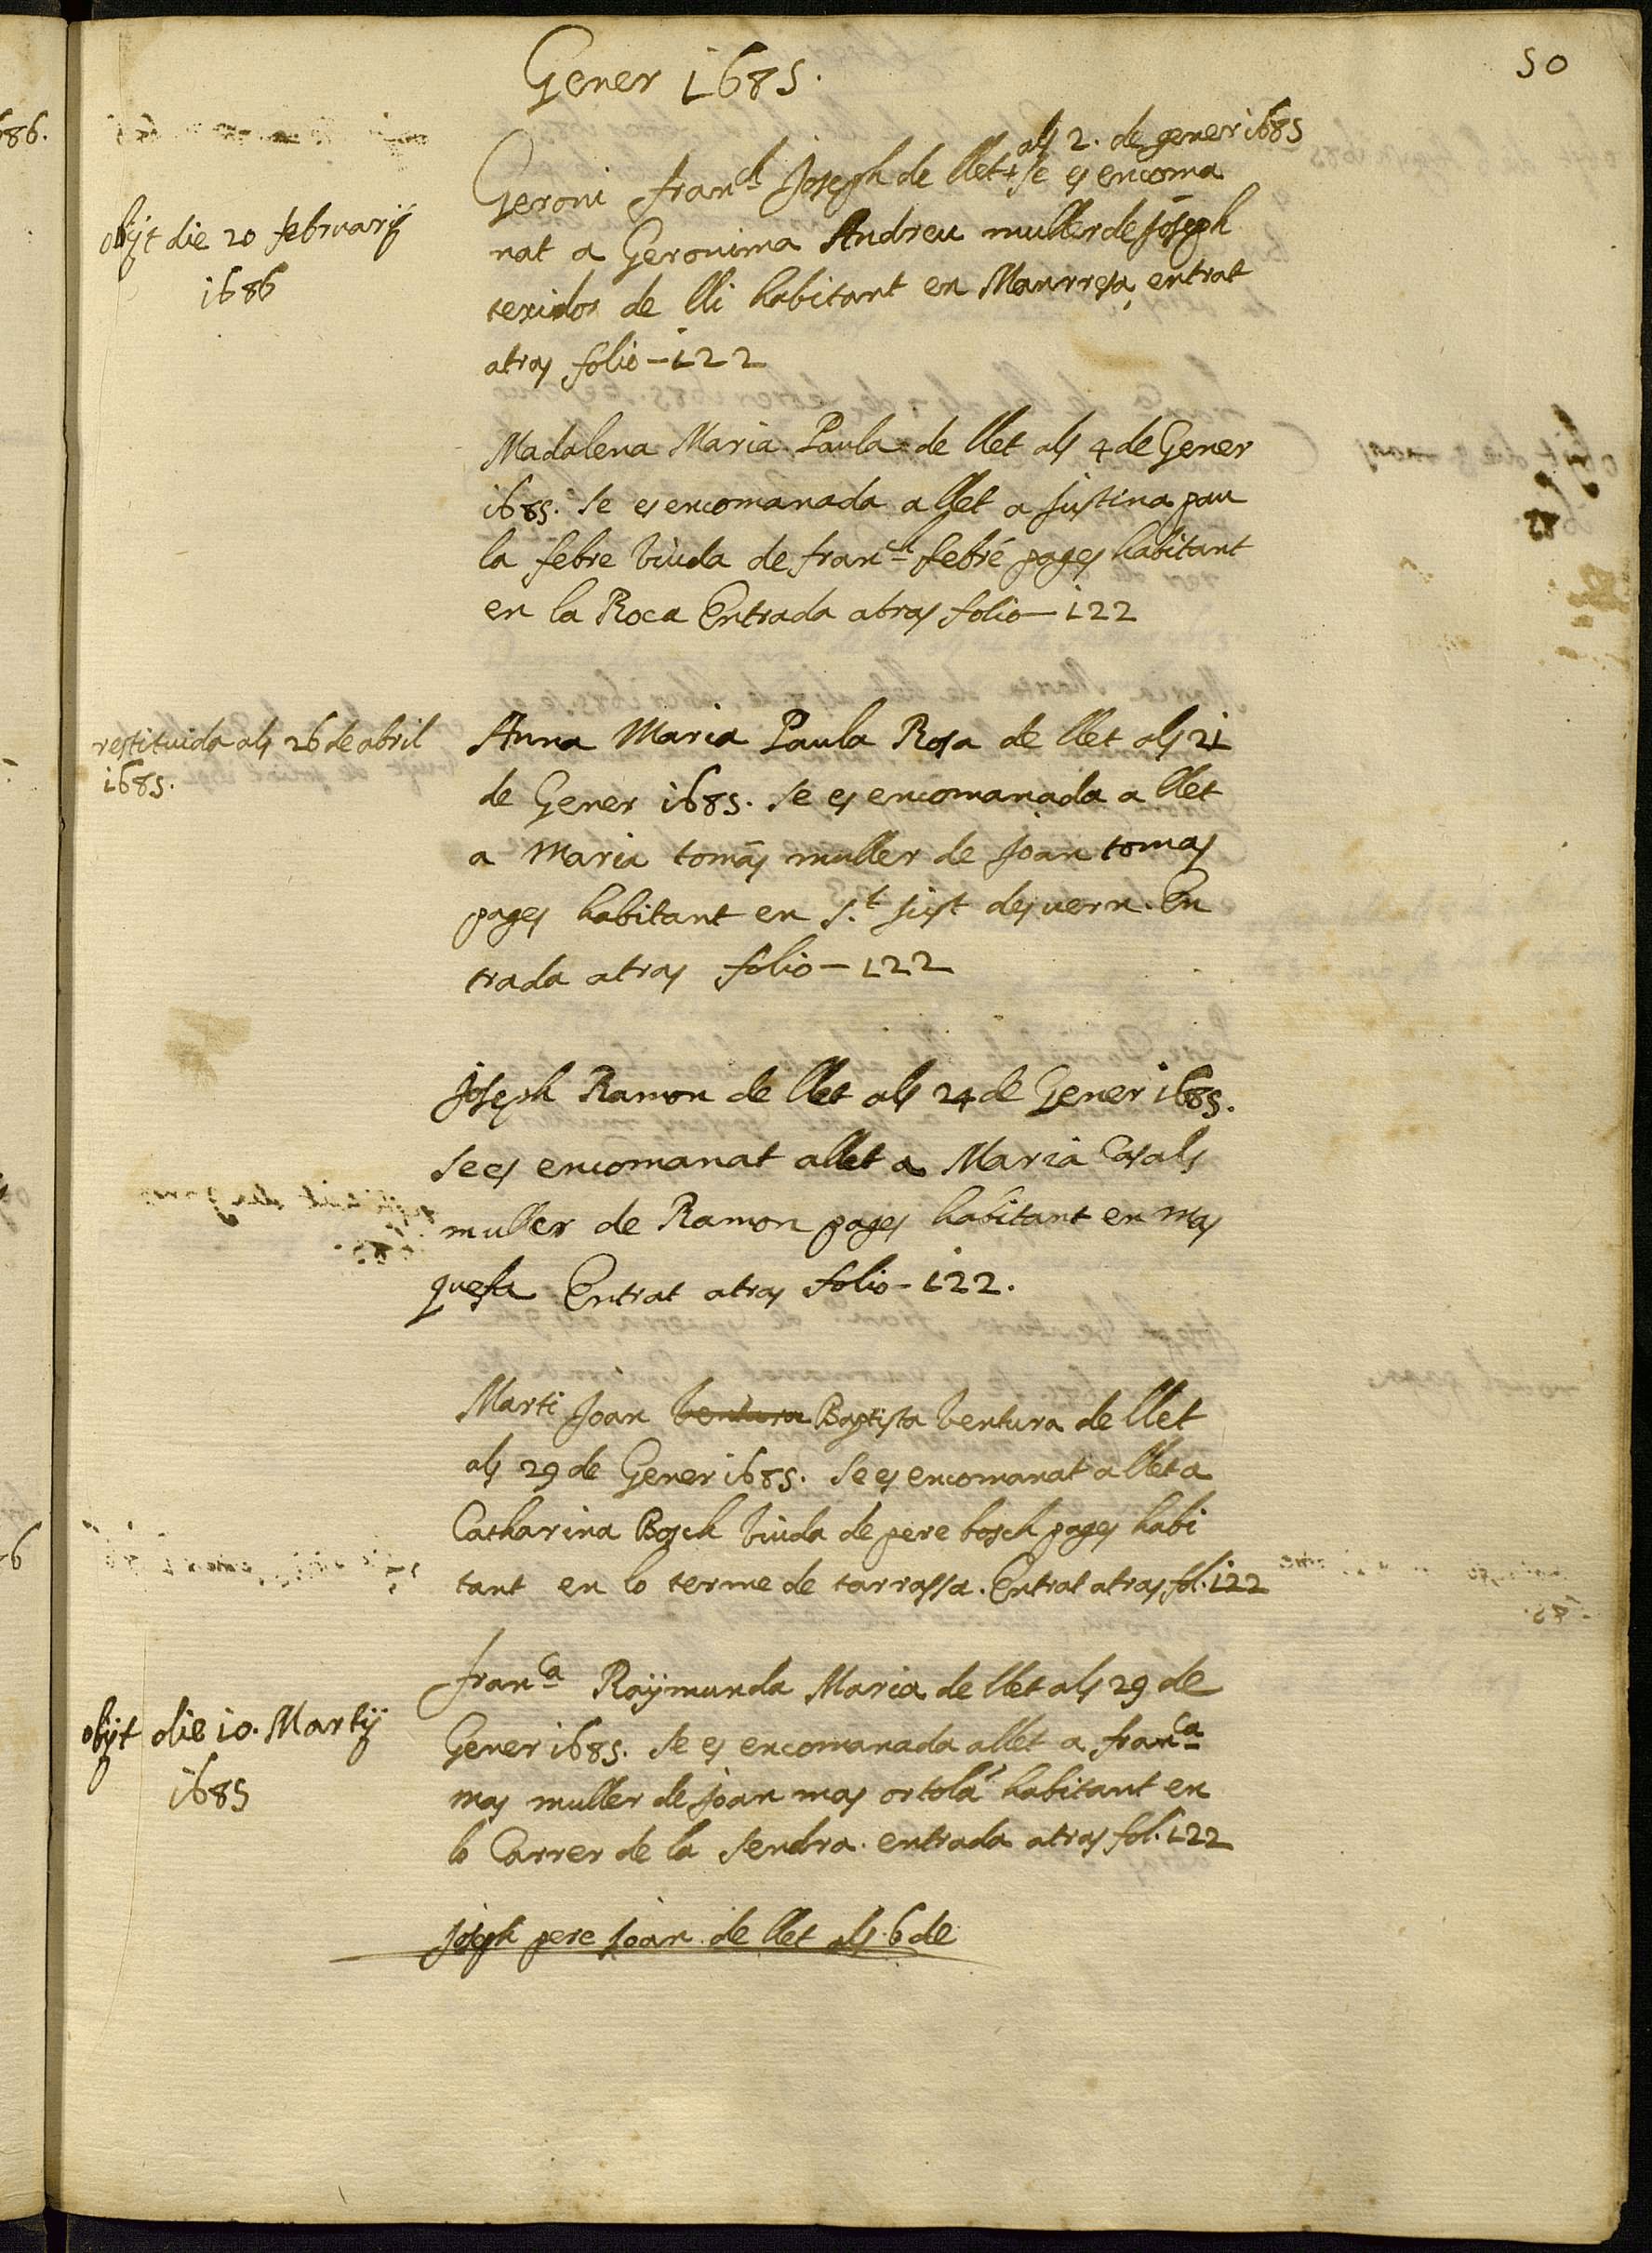 50
Gener 1685.
als 2. de gener 1685
Geroni franch Joseph de llet + se es encoma
nat a Geronima Andreu muller de Joseph
texidor de lli habitant en Manrresa, entrat
atras folio - 122
obijt die 20 februarij
1686
Madalena Maria Paula de llet als 4 de Gener
1685. se es encomanada a llet a Justina pau
la febre viuda de franch febré pages habitant
en la Roca Entrada atras folio - 122
restituida als 26 de abril
1685.
Anna Maria Paula Rosa de llet als 21
de Gener 1685. se es encomanada a llet
a Maria tomás muller de Joan tomas
pages habitant en s.t Just desvern. En
trada atras folio - 122
Joseph Ramon de llet als 24 de Gener 1685.
se es encomanat a llet a Maria Casals
muller de Ramon pages habitant en Mas
quefa Entrat atras folio - 122.
Marti Joan ventura Baptista ventura de llet
als 29 de Gener 1685. se es encomanat a llet a
Catharina Bosch viuda de pere bosch pages habi
tant en lo terme de tarrassa. Entrat atras fol. 122
franca Raÿmunda Maria de llet als 29 de
Gener 1685. se es encomanada a llet a franca
mas muller de Joan mas ortolá habitant en
lo Carrer de la Sendra. entrada atras fol. 122
obijt die 10. Martij
1685
Joseph pere Joan de llet als 6 de